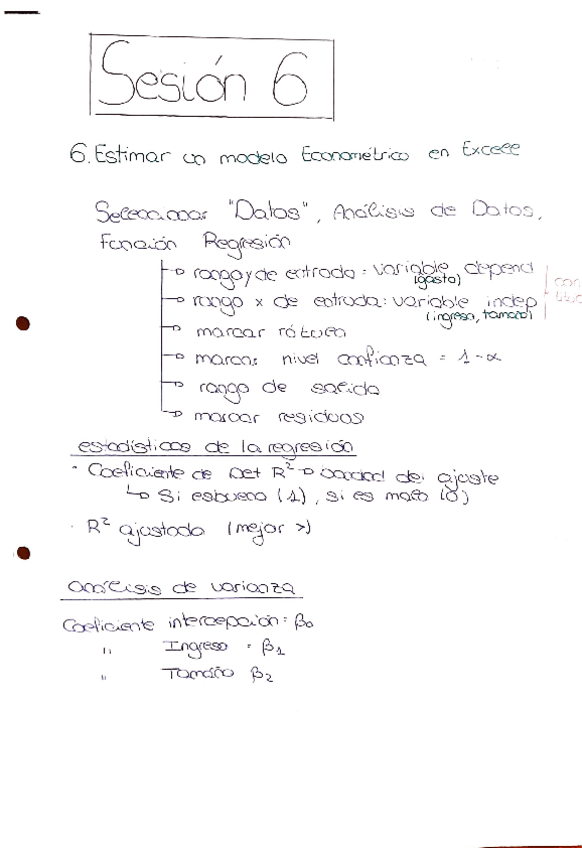 Sesión 6
6. Estimar un modelo Econométrico en Excell
Seleccionar "Datos", Análisis de Datos,
Función Regresión
→ rango y de entrada: variable depend
(gasto)
→ rango x de entrada: variable indep
(ingreso, tamaño)
con
→ marcar rótulo
→ marcar nivel confianza = 1-α
→ rango de salida
→ marcar residuos
estadísticos de la regresión
· Coeficiente de Det R² → bondad del ajuste
↳ Si es bueno (1), si es malo (0)
· R² ajustado (mejor >)
análisis de varianza
Coeficiente intercepción: β0
" Ingreso : β1
" Tamaño β2